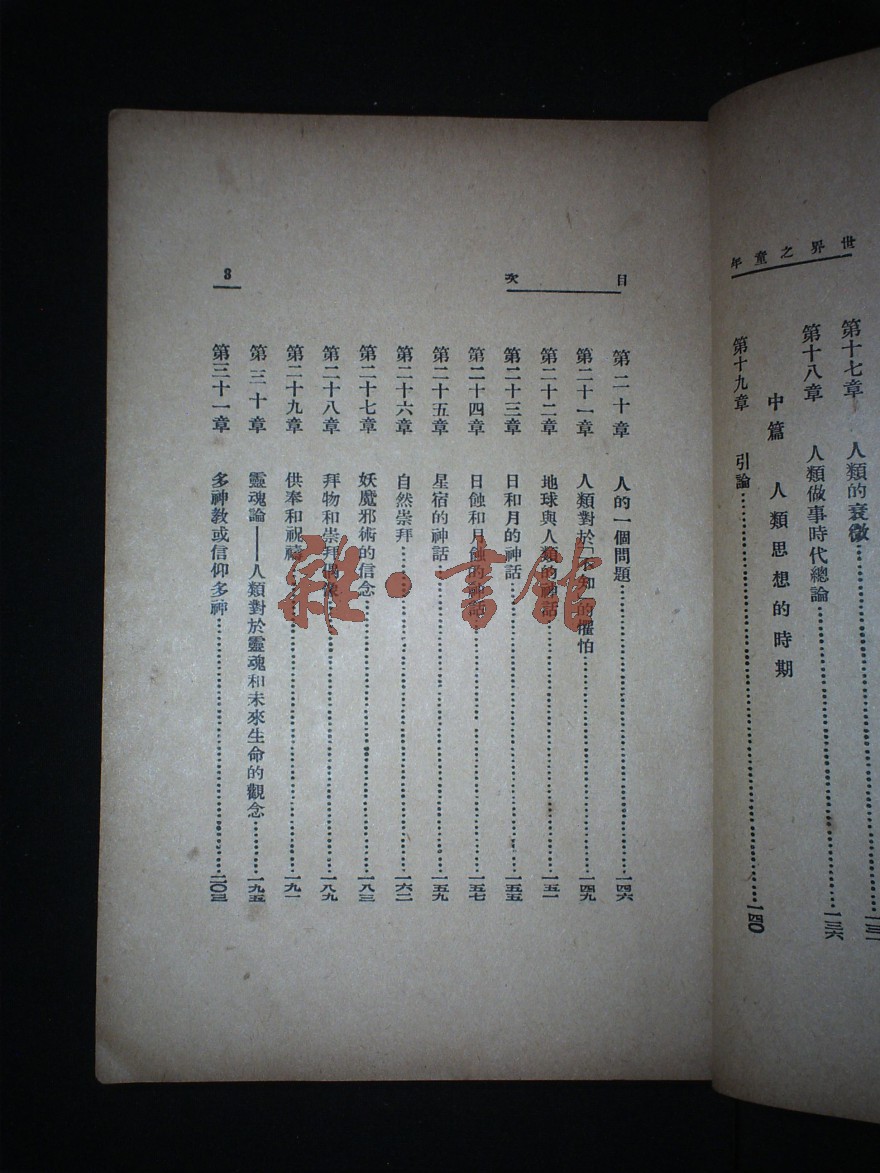 世界之童年
第十七章 人類的衰微……一三一
第十八章 人類做事時代總論……一三六
中篇 人類思想的時期
第十九章 引論……一四〇
目次
3
第二十章 人的一個問題……一四六
第二十一章 人類對於「不知」的懼怕……一四九
第二十二章 地球與人類的神話……一五一
第二十三章 日和月的神話……一五五
第二十四章 日蝕和月蝕的神話……一五七
第二十五章 星宿的神話……一五九
第二十六章 自然崇拜……一六二
第二十七章 妖魔邪術的信念……一八三
第二十八章 拜物和崇拜偶像……一八九
第二十九章 供奉和祝禱……一九一
第三十章 靈魂論——人類對於靈魂和未來生命的觀念……一九五
第三十一章 多神教或信仰多神……二〇三
雜·書館